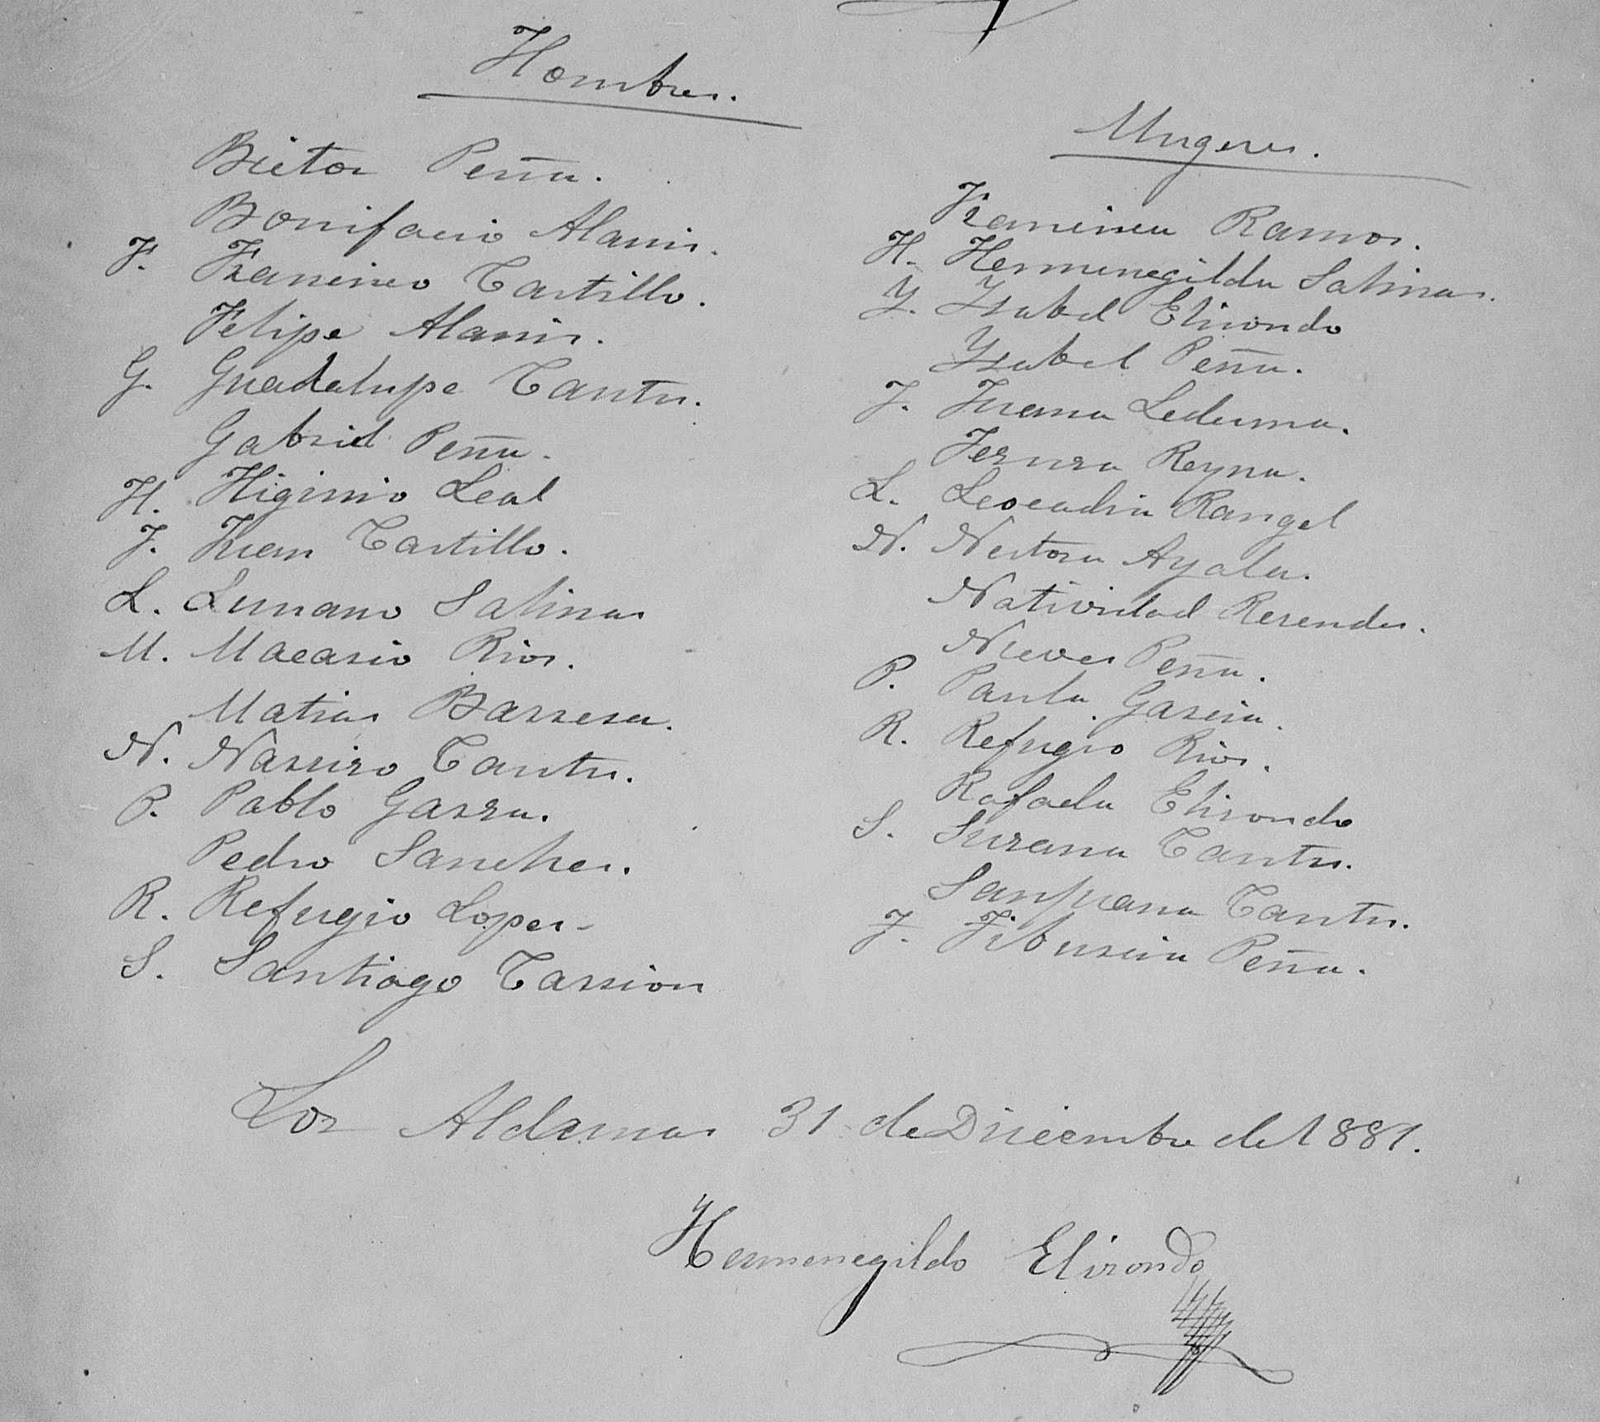 Hombres.
Bictor Peña.
Bonifacio Alanis.
F. Francisco Castillo.
Felipe Alanis.
G. Guadalupe Cantu.
Gabriel Peña.
H. Higinio Leal
J. Juan Castillo.
L. Luciano Salinas
M. Macario Rios.
Matias Barrera.
N. Narciro Cantu.
P. Pablo Garza.
Pedro Sanches.
R. Refugio Lopes.
S. Santiago Carrion
Mugeres.
Francisca Ramos.
H. Hermenegilda Salinas.
Y. Ysabel Elizondo
Ysabel Peña.
J. Juana Ledesma.
Reyna.
L. Leocadia Rangel
N. Nestora Ayala.
Natividad Resendes.
Nieves Peña.
P. Paula Garcia.
R. Refugio Rios.
Rafaela Elizondo
S. Susana Cantu.
Sanjuana Cantu.
T. Tiburcia Peña.
Los Aldamas 31 de Diciembre de 1881.
Hermenegildo Elizondo